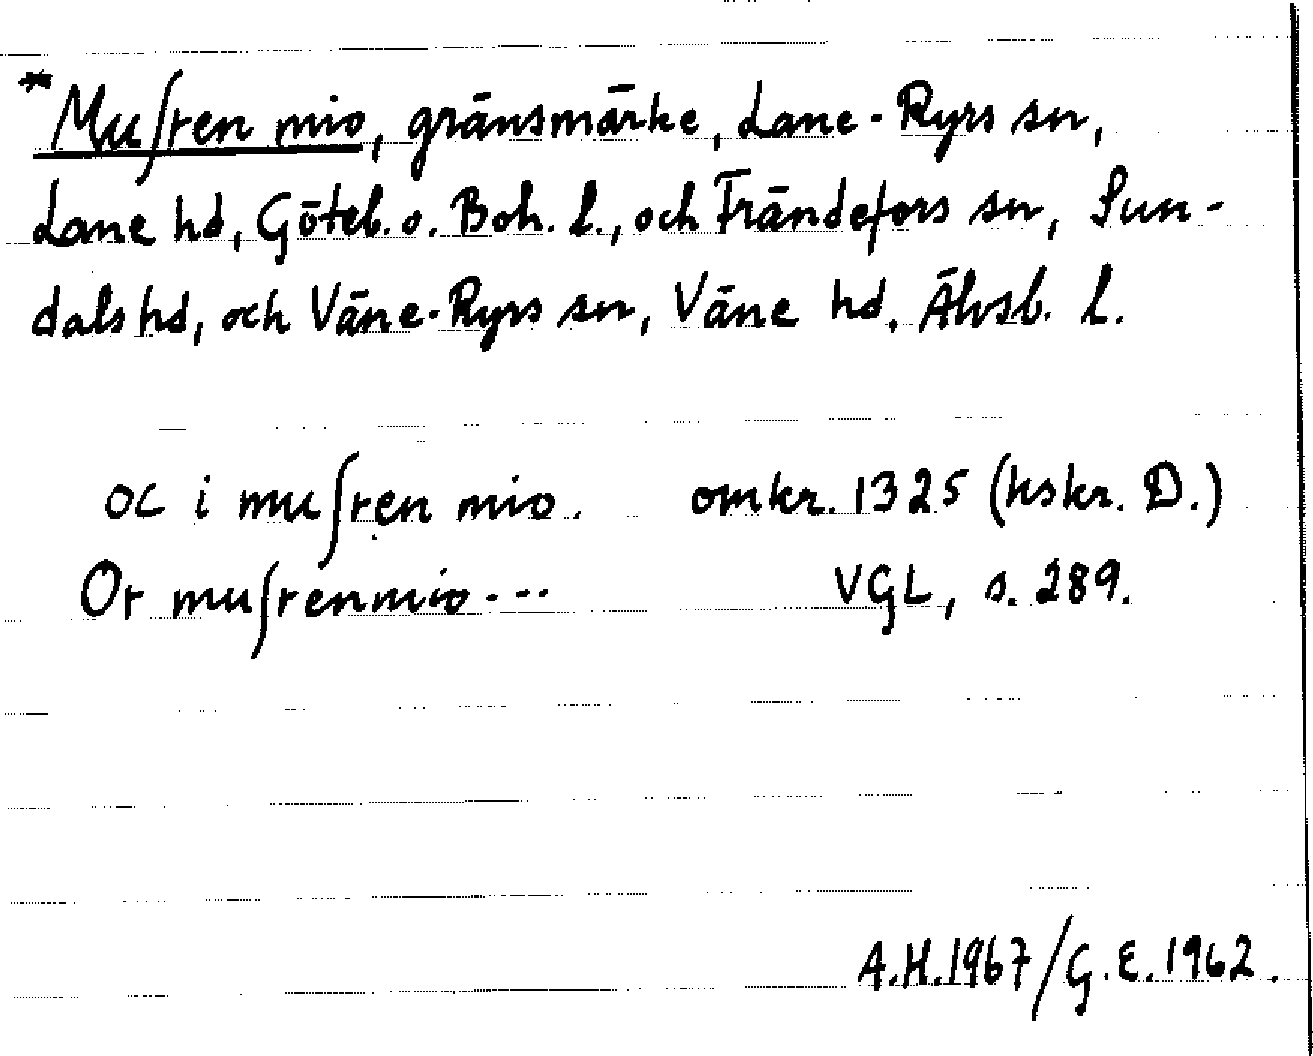 *Muſren mio, gränsmärke, Lane-Ryrs sn,
Lane hd, Göteb. o. Boh. l., och Frändefors sn, Sun-
dals hd, och Väne-Ryrs sn, Väne hd, Älvsb. l.
oc i muſren mio. omkr. 1325 (hskr. D.)
Or muſrenmio--- VGL, s. 289.
A.H.1967/G.E.1962.